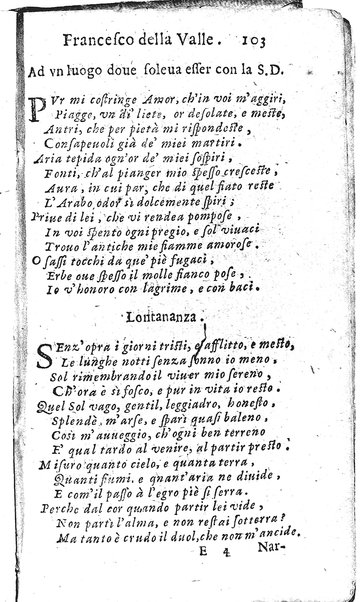 Francesco della Valle. 103
Ad vn luogo doue soleua esser con la S.D.
PVr mi costringe Amor, ch'in voi m'aggiri,
Piagge, vn di liete, or desolate, e meste,
Antri, che per pietà mi rispondeste,
Consapeuoli già de' miei martiri.
Aria tepida ogn'or de' miei sospiri,
Fonti, ch'al pianger mio spesso cresceste,
Aura, in cui par, che di quel fiato reste
L'Arabo odor sì dolcemente spiri;
Priue di lei, che vi rendea pompose,
In voi spento ogni pregio, e sol viuaci
Trouo l'antiche mie fiamme amorose.
O sassi tocchi da que' piè fugaci,
Erbe oue spesso il molle fianco pose,
Io v'honoro con lagrime, e con baci.
Lontananza.
SEnz'opra i giorni tristi, afflitto, e mesto,
Le lunghe notti senza sonno io meno,
Sol rimembrando il viuer mio sereno,
Ch'ora è sì fosco, e pur in vita io resto.
Quel Sol vago, gentil, leggiadro, honesto,
Splende, m'arse, e sparì quasi baleno,
Così m'aueggio, ch'ogni ben terreno
E' qual tardo al venire, al partir presto.
Misuro quanto cielo, e quanta terra,
Quanti fiumi, e quant'aria ne diuide,
E com'il passo à l'egro piè si serra.
Perche dal cor quando partir lei vide,
Non partì l'alma, e non restai sotterra?
Ma tanto è crudo il duol, che non m'ancide.
E 4 Nar-